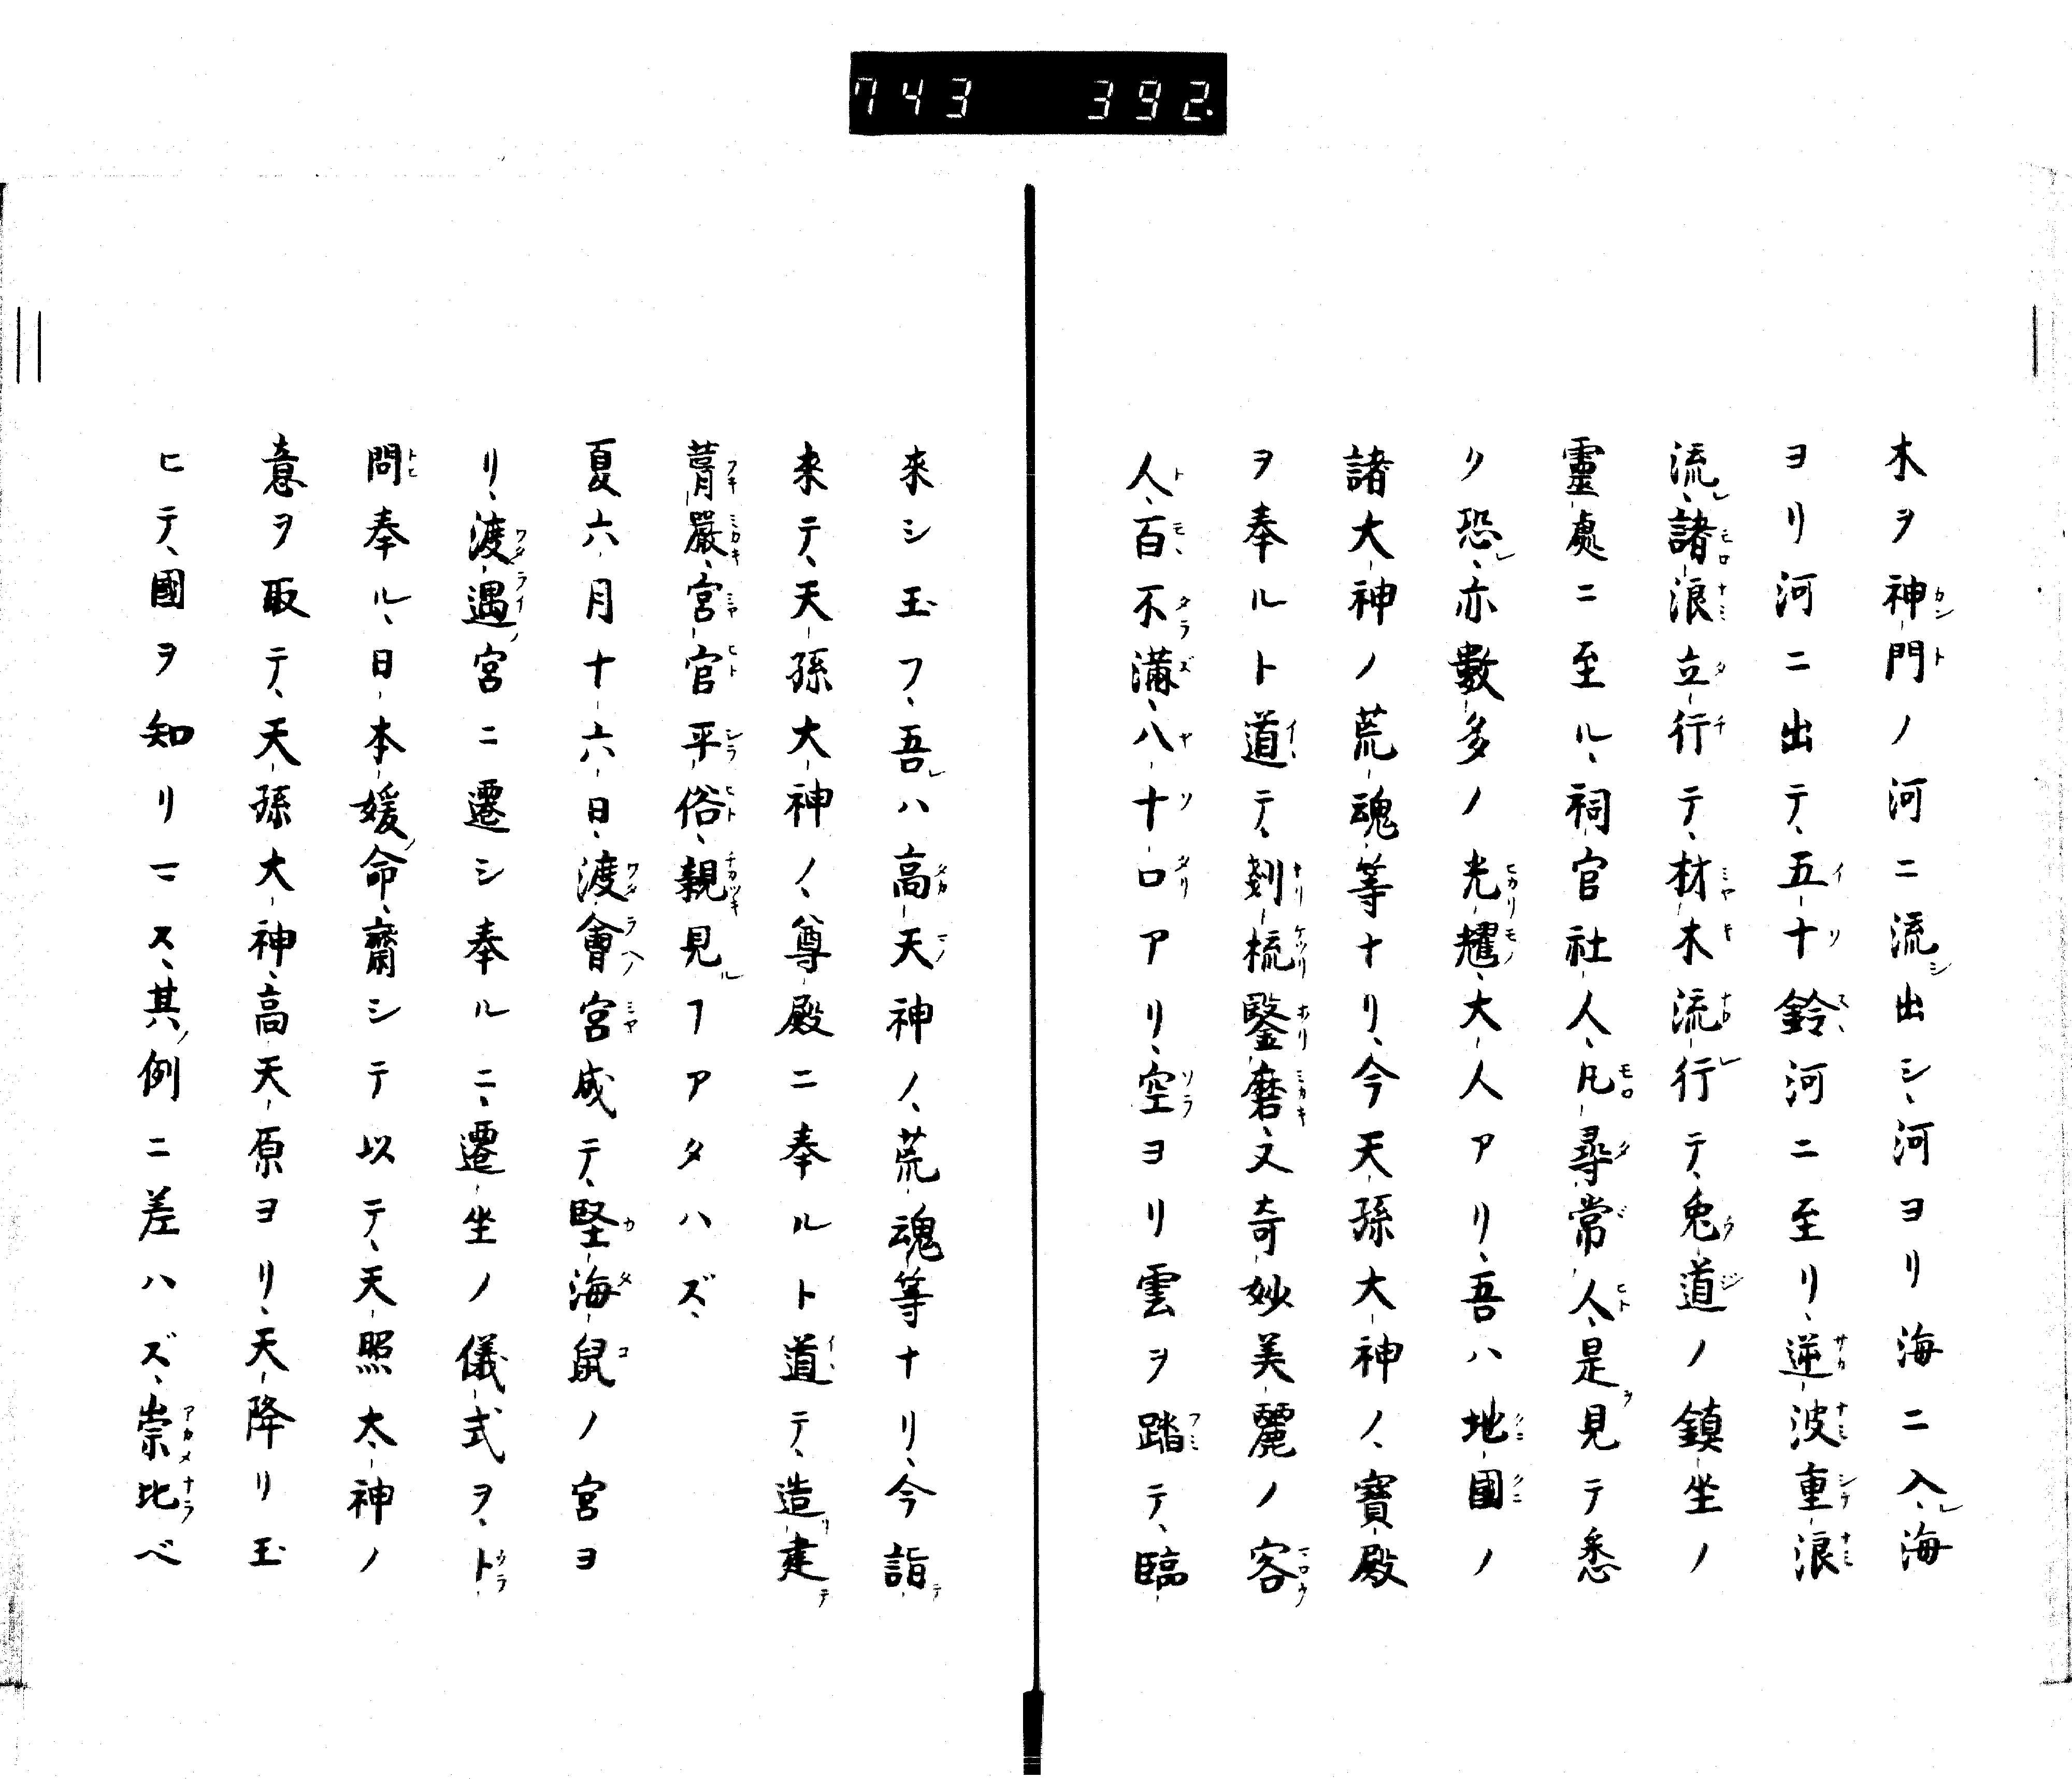 743 392.
木ヲ神門ノ河ニ流出シ、河ヨリ海ニ入、海
ヨリ河ニ出テ、五十鈴河ニ至リ、逆波重浪
流、諸浪立行テ、材木流行テ、兎道ノ鎮坐ノ
靈處ニ至ル、祠官社人、凡尋常人、是見テ悉
ク恐、亦數多ノ光耀、大人アリ、吾ハ地國ノ
諸大神ノ荒魂等ナリ、今天孫大神ノ、寶殿
ヲ奉ルト道テ、剗梳鑿磨、文奇妙美麗ノ客
人、百不満、八十口アリ、空ヨリ雲ヲ踏テ、臨
來シ玉フ、吾ハ高天神ノ、荒魂等ナリ、今詣
来テ、天孫大神ノ、尊殿ニ奉ルト道テ、造建
葺嚴、宮官平俗、親見フアタハズ、
夏六月十六日、渡會宮成テ、堅海鼠ノ宮ヨ
リ、渡遇宮ニ遷シ奉ルニ、遷坐ノ儀式ヲ、卜
問奉ル、日本媛命、齋シテ以テ、天照大神ノ
意ヲ取テ、天孫大神、高天原ヨリ、天降リ玉
ヒテ、國ヲ知リマス、其例ニ差ハズ、崇比ベ